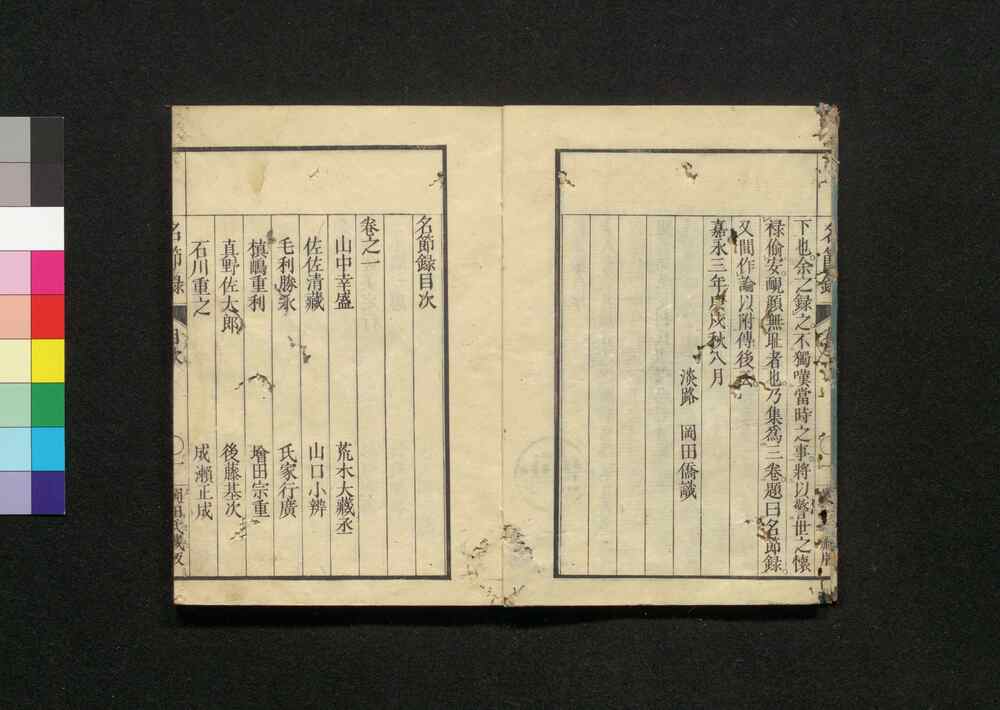 下也余之録之不獨嘆當時之事將以警世之懷
禄偷安靦顔無耻者也乃集為三卷題曰名節録
又間作論以附傳後云
嘉永三年庚戌秋八月
淡路 岡田僑識
名節録目次
卷之一
山中幸盛 荒木大藏丞
佐佐清藏 山口小辨
毛利勝永 氏家行廣
槙嶋重利 增田宗重
真野佐太郎 後藤基次
石川重之 成瀬正成
名節録 目次 一 岡田氏藏板